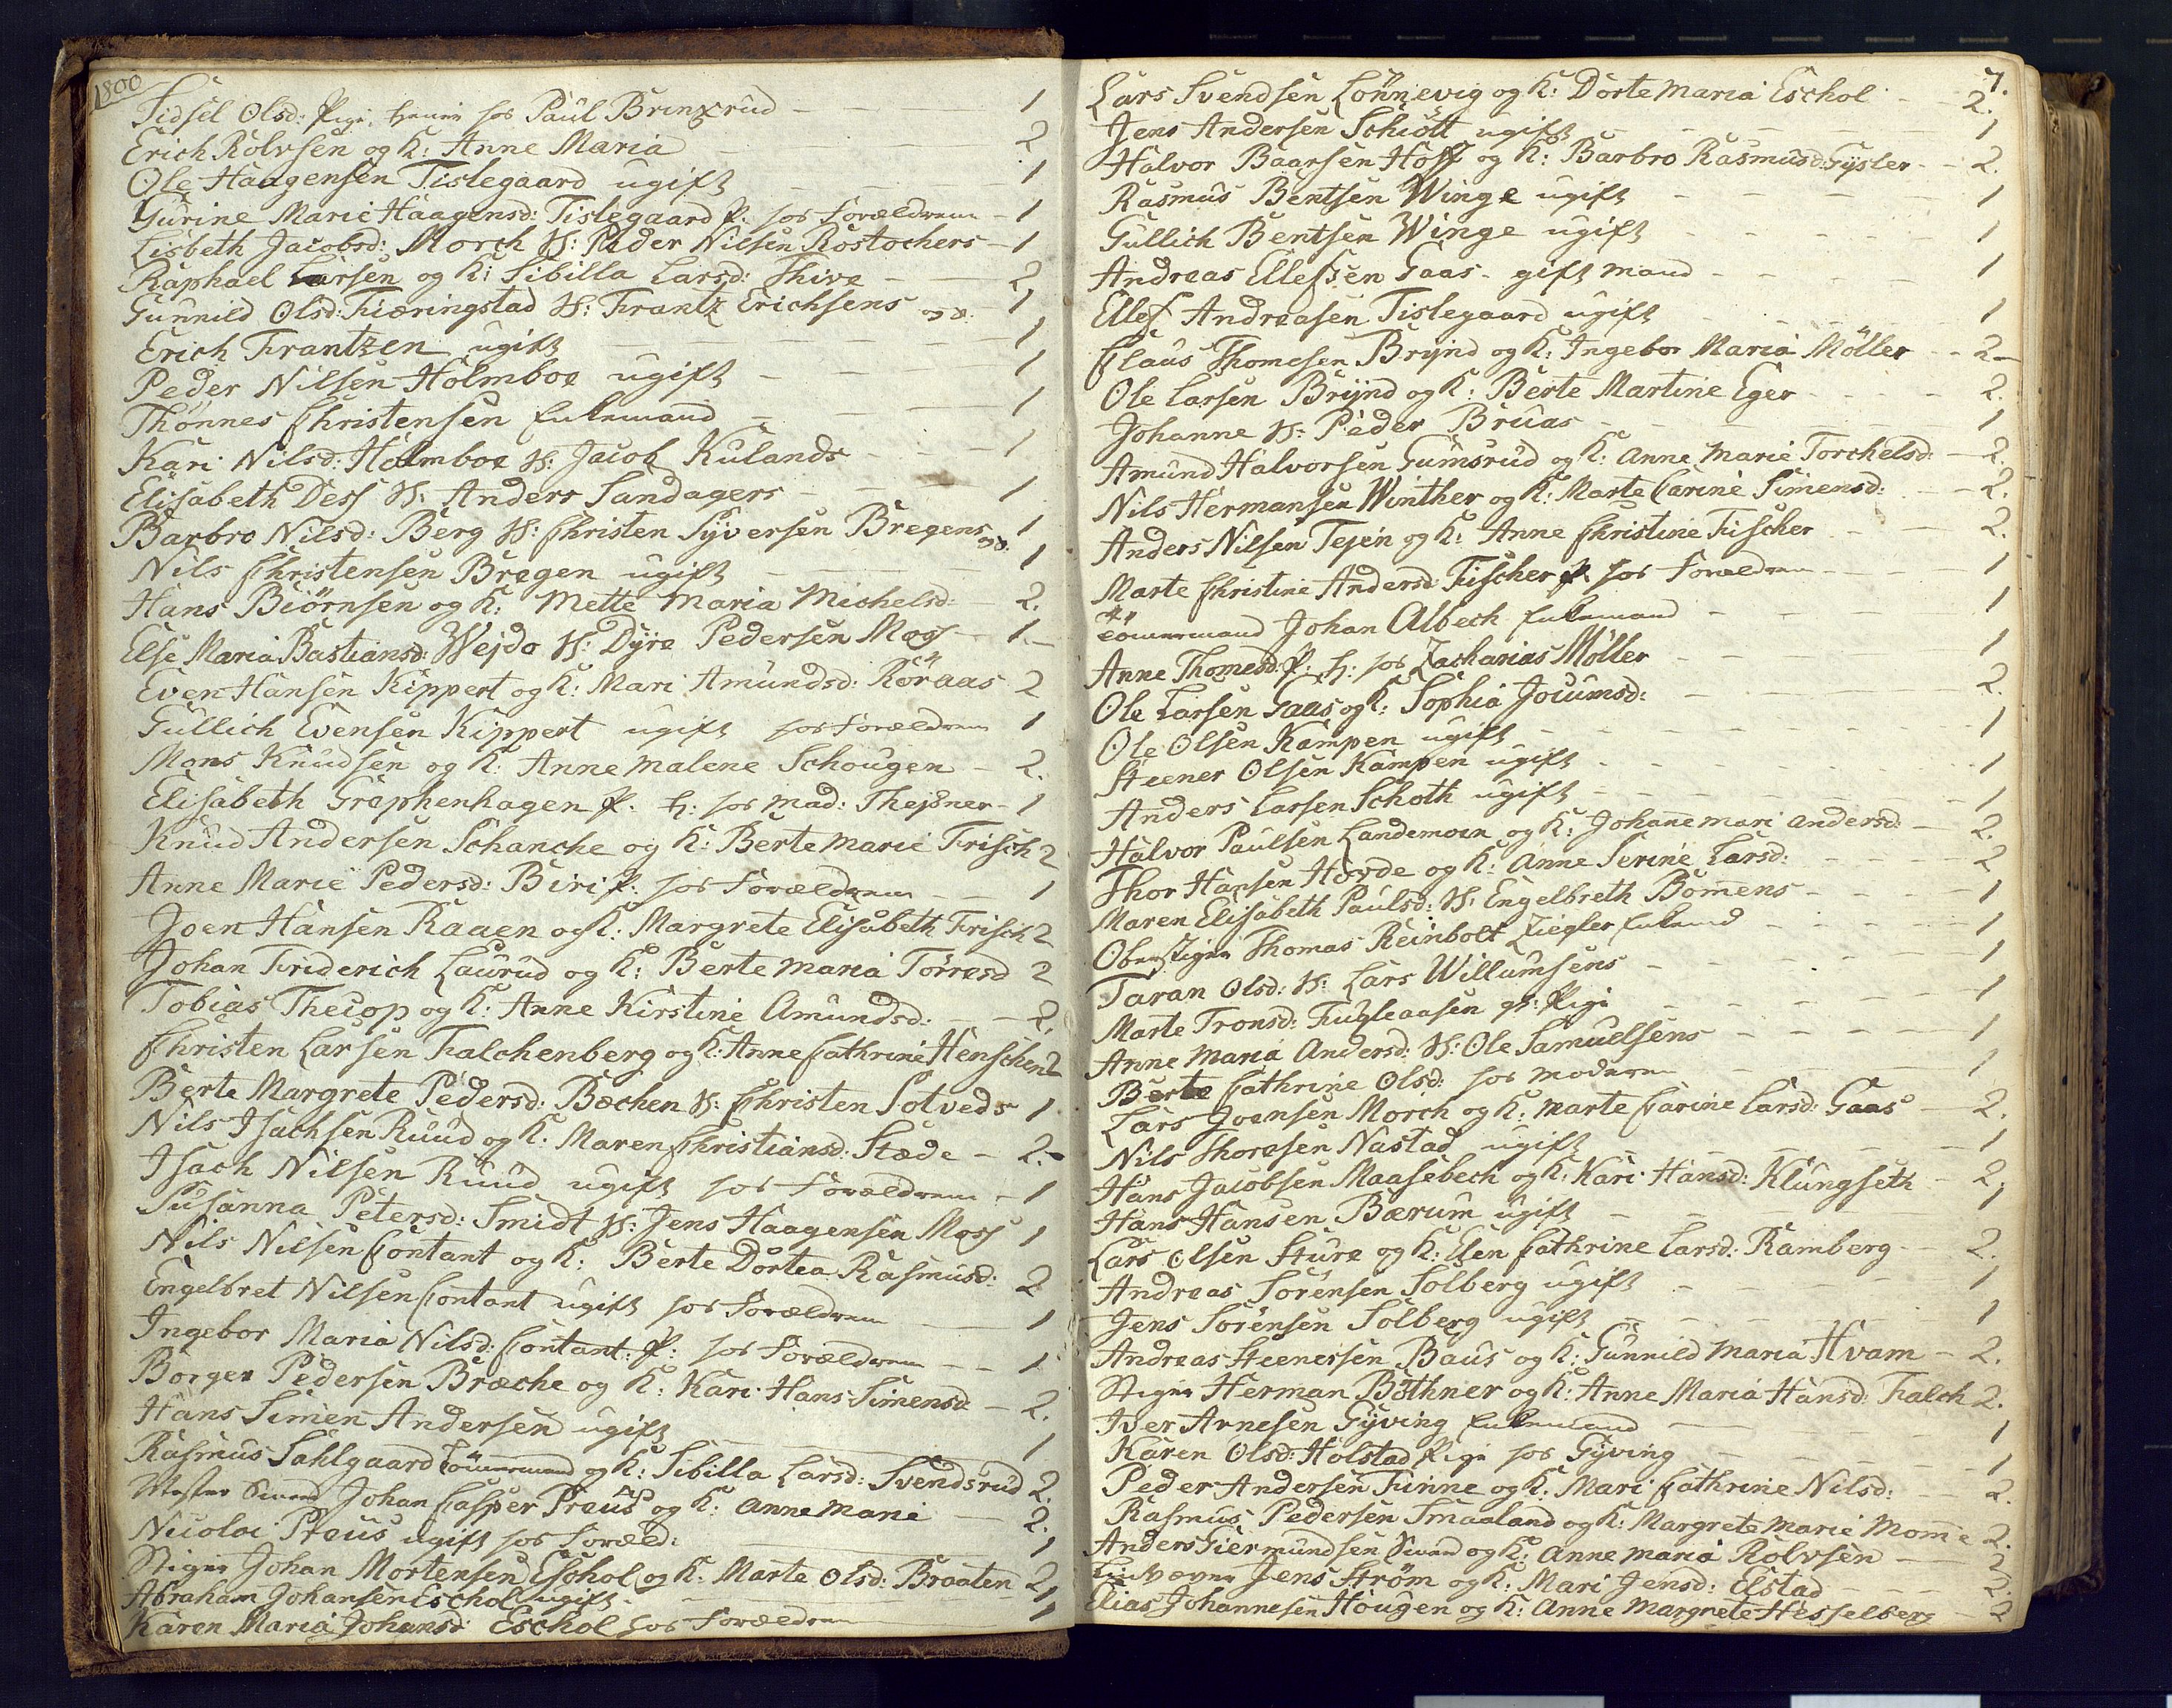 1800
Sidsel Olsd: Pige, tiener hos Paul Brinxrud - 1
Erich Rolvsen og K: Anne Maria - 2
Ole Haagensen Tislegaard ugift - 1
Gurine Marie Haagensd: Tislegaard P: hos Forældrene - 1
Lisbeth Jacobsd: Morch H: Peder Nilsen Rostochers - 1
Raphael Larsen og K: Sibilla Larsd: Thive - 2
Gunnild Olsd: Fiæringstad H: Frantz Erichsens og d. 1
Erich Frantzen ugift - 1
Peder Nilsen Holmboe ugift - 1
Thönnes Christensen Enkemand - 1
Kari Nilsd: Holmboe H: Jacob Kulands - 1
Elisabeth Dess H: Anders Sandagers - 1
Barbro Nilsd: Berg H: Christen Syversen Bregens og d. 1
Nils Christensen Bregen ugift - 1
Hans Biörnsen og K: Mette Maria Michelsd: - 2.
Else Maria Bastiansd: Wejdo H: Dyre Pedersen Moes - 1.
Even Hansen Kippert og K: Mari Amundsd: Röraas 2
Gullich Evensen Kippert ugift hos Forældrene 1
Mons Knudsen og K: Anne Malene Schougen - 2.
Elisabeth Grephenhagen P. t: hos Mad: Thejsner - 1
Knud Andersen Schanche og K: Berte Marie Frisch 2
Anne Marie Pedersd: Biri P: hos Forældrene - 1
Joen Hansen Raaen og K: Margrete Elisabeth Frisch 2
Johan Friderich Laurud og K: Berte Maria Törresd 2
Tobias Thecop og K: Anne Kirstine Amundsd: - 2.
Christen Larsen Falchenberg og K: Anne Cathrine Henschen 2
Berte Margrete Pedersd: Bæchen H: Christen Sotveds 1
Nils Isachsen Ruud og K. Maren Christiansd: Stæde - 2.
Isach Nilsen Ruud ugift hos Forældrene - 1
Susanna Petersd: Smidt H: Jens Haagensen Moes 1
Nils Nilsen Contant og K: Berte Dortea Rasmusd: 2
Engelbret Nilsen Contant ugift hos Forældrene 1
Ingebor Maria Nilsd: Contant: P: hos Forældrene - 1
Borger Pedersen Bræche og K: Kari Hans Simensd - 2.
Hans Simen Andersen ugift 1
Rasmus Sahlgaard Tömmermand og K: Sibilla Larsd: Svendsrud 2.
Mester Svend Johan Casper Preus og K: Anne Marie - 2.
Nicolai Preus ugift hos Foræld: 1
Stiger Johan Mortensen Eschol og K. Marte Olsd: Braaten 2
Abraham Johansen Eschol ugift - 1
Karen Maria Johansd: Eschol hos Forældrene 1
7.
Lars Svendsen Lönnevig og K: Dorte Maria Eschol - 2.
Jens Andersen Schiött ugift - 1
Halvor Baarsen Hoff og K: Barbro Rasmusd: Gysler - 2.
Rasmus Bentsen Winge ugift - 1
Gullich Bentsen Winge ugift - 1
Andreas Ellefsen Gaas - gift mand - 1
Ellef Andreasen Tislegaard ugift - 1
Claus Thomesen Brynd og K: Ingebor Maria Möller - 2
Ole Larsen Brynd og K: Berte Martine Eger - 2.
Johanne H: Peder Bruas - 1
Amund Halvorsen Gumsrud og K: Anne Marie Torchelsd: - 2.
Nils Hermansen Winther og K: Marte Carine Simensd: - 2.
Anders Nilsen Tejen og K: Anne Christine Fischer - 2.
Marte Christine Andersd Fischer P. hos Forældrene - 1
Tömmermand Johan Albech Enkemand - 1
Anne Thomesd: P. t: hos Zacharias Möller - 1
Ole Larsen Gaas og K: Sophia Jocumsd: - 2.
Ole Olsen Kampen ugift - 1
Steener Olsen Kampen ugift - 1
Anders Larsen Schoth ugift - 1
Halvor Paulsen Landemoen og K: Johanne Mari Andersd: - 2.
Thor Hansen Hovde og K: Anne Serine Larsd: - 2
Maren Elisabeth Paulsd: H: Engelbreth Bommens - 1
Oberstiger Thomas Reinbolt Ziegler Enkemd - 1
Taran Olsd: H: Lars Willumsens - 1
Marte Tronsd: Fugleaasen gl: Pige - 1
Anne Maria Andersd: H: Ole Samuelsens - 1
Berte Cathrine Olsd: hos Moderen - 1
Lars Joensen Mörch og K. Marte Carine Larsd: Gaas - 2.
Nils Thoresen Nastad ugift - 1
Hans Jacobsen Maasebech og K: Kari Hansd: Klungseth - 2.
Hans Hansen Bærum ugift - 1
Lars Olsen Sture og K: Elen Cathrine Larsd: Ramberg - 2.
Andreas Sörensen Solberg ugift - 1
Jens Sörensen Solberg ugift - 1
Andreas Steenersen Baus og K: Gunnild Maria Hvam - 2.
Stiger Herman Böthner og K: Anne Maria Hansd: Falch 2.
Iver Arnesen Gyving Enkemand - 1
Karen Olsd: Holstad Pige hos Gyving - 1
Peder Andersen Finne og K: Mari Cathrine Nilsd: - 2.
Rasmus Pedersen Smaaland og K: Margrete Marie Momme 2.
Anders Giermundsen Svend og K: Anne Maria Rolvsen - 2
Jens Ström og K: Mari Jensd: Elstad - 2.
Elias Johannesen Hougen og K: Anne Margrete Hesselberg - 2